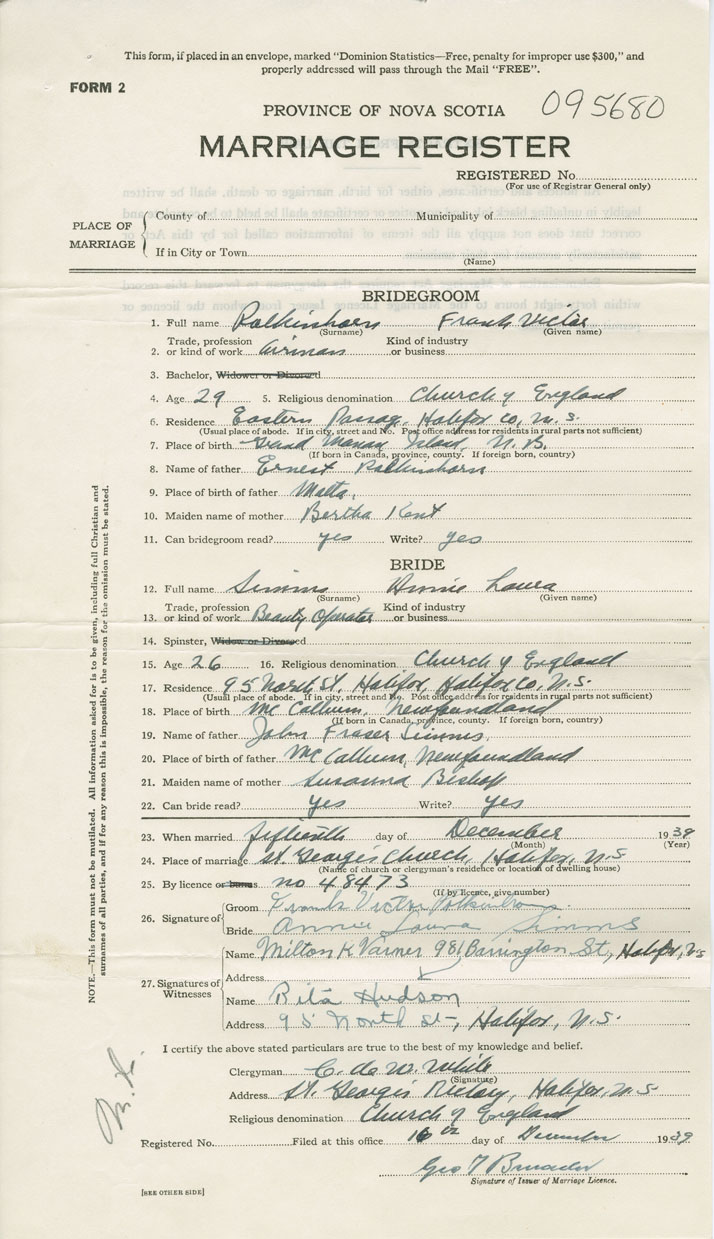 This form, if placed in an envelope, marked "Dominion Statistics—Free, penalty for improper use $300," and
properly addressed will pass through the Mail "FREE".
FORM 2
095680
PROVINCE OF NOVA SCOTIA
MARRIAGE REGISTER
REGISTERED No.
(For use of Registrar General only)
PLACE OF MARRIAGE
County of Municipality of
If in City or Town
(Name)
BRIDEGROOM
1. Full name Frank Victor
(Surname) (Given name)
2. Trade, profession or kind of work Airman Kind of industry or business
3. Bachelor, Widower or Divorced
4. Age 29 5. Religious denomination Church of England
6. Residence Eastern Passage, Halifax Co, N.S.
(Usual place of abode. If in city, street and No. Post office address for residents in rural parts not sufficient)
7. Place of birth Grand Manan Island, N.B.
(If born in Canada, province, county. If foreign born, country)
8. Name of father Ernest
9. Place of birth of father Malta,
10. Maiden name of mother Bertha Kent
11. Can bridegroom read? yes Write? yes
BRIDE
12. Full name Simms Annie Laura
(Surname) (Given name)
13. Trade, profession or kind of work Beauty Operator Kind of industry or business
14. Spinster, Widow or Divorced
15. Age 26 16. Religious denomination Church of England
17. Residence 95 North St, Halifax, Halifax Co, N.S.
(Usual place of abode. If in city, street and No. Post office address for residents in rural parts not sufficient)
18. Place of birth McCallum, Newfoundland
(If born in Canada, province, county. If foreign born, country)
19. Name of father John Fraser Simms.
20. Place of birth of father McCallum, Newfoundland
21. Maiden name of mother Susanna Bishop
22. Can bride read? yes Write? yes
23. When married day of December 1939
(Month) (Year)
24. Place of marriage St. George's Church, Halifax, N.S
(Name of church or clergyman's residence or location of dwelling house)
25. By licence or banns no 48473
(If by licence, give number)
26. Signature of
Groom Frank Victor
Bride Annie Laura Simms
27. Signatures of Witnesses
Name Milton K Varner 981 Barrington St, Halifax, NS
Address
Name Rita Hudson
Address 95 North St, Halifax, N.S.
I certify the above stated particulars are true to the best of my knowledge and belief.
Clergyman C. de W. White
(Signature)
Address St. George's Rectory, Halifax, N.S
Religious denomination Church of England
Registered No. Filed at this office 16th day of December 1939
Geo T
Signature of Issuer of Marriage Licence.
[SEE OTHER SIDE]
NOTE.—This form must not be mutilated. All information asked for is to be given, including full Christian and
surnames of all parties, and if for any reason this is impossible, the reason for the omission must be stated.